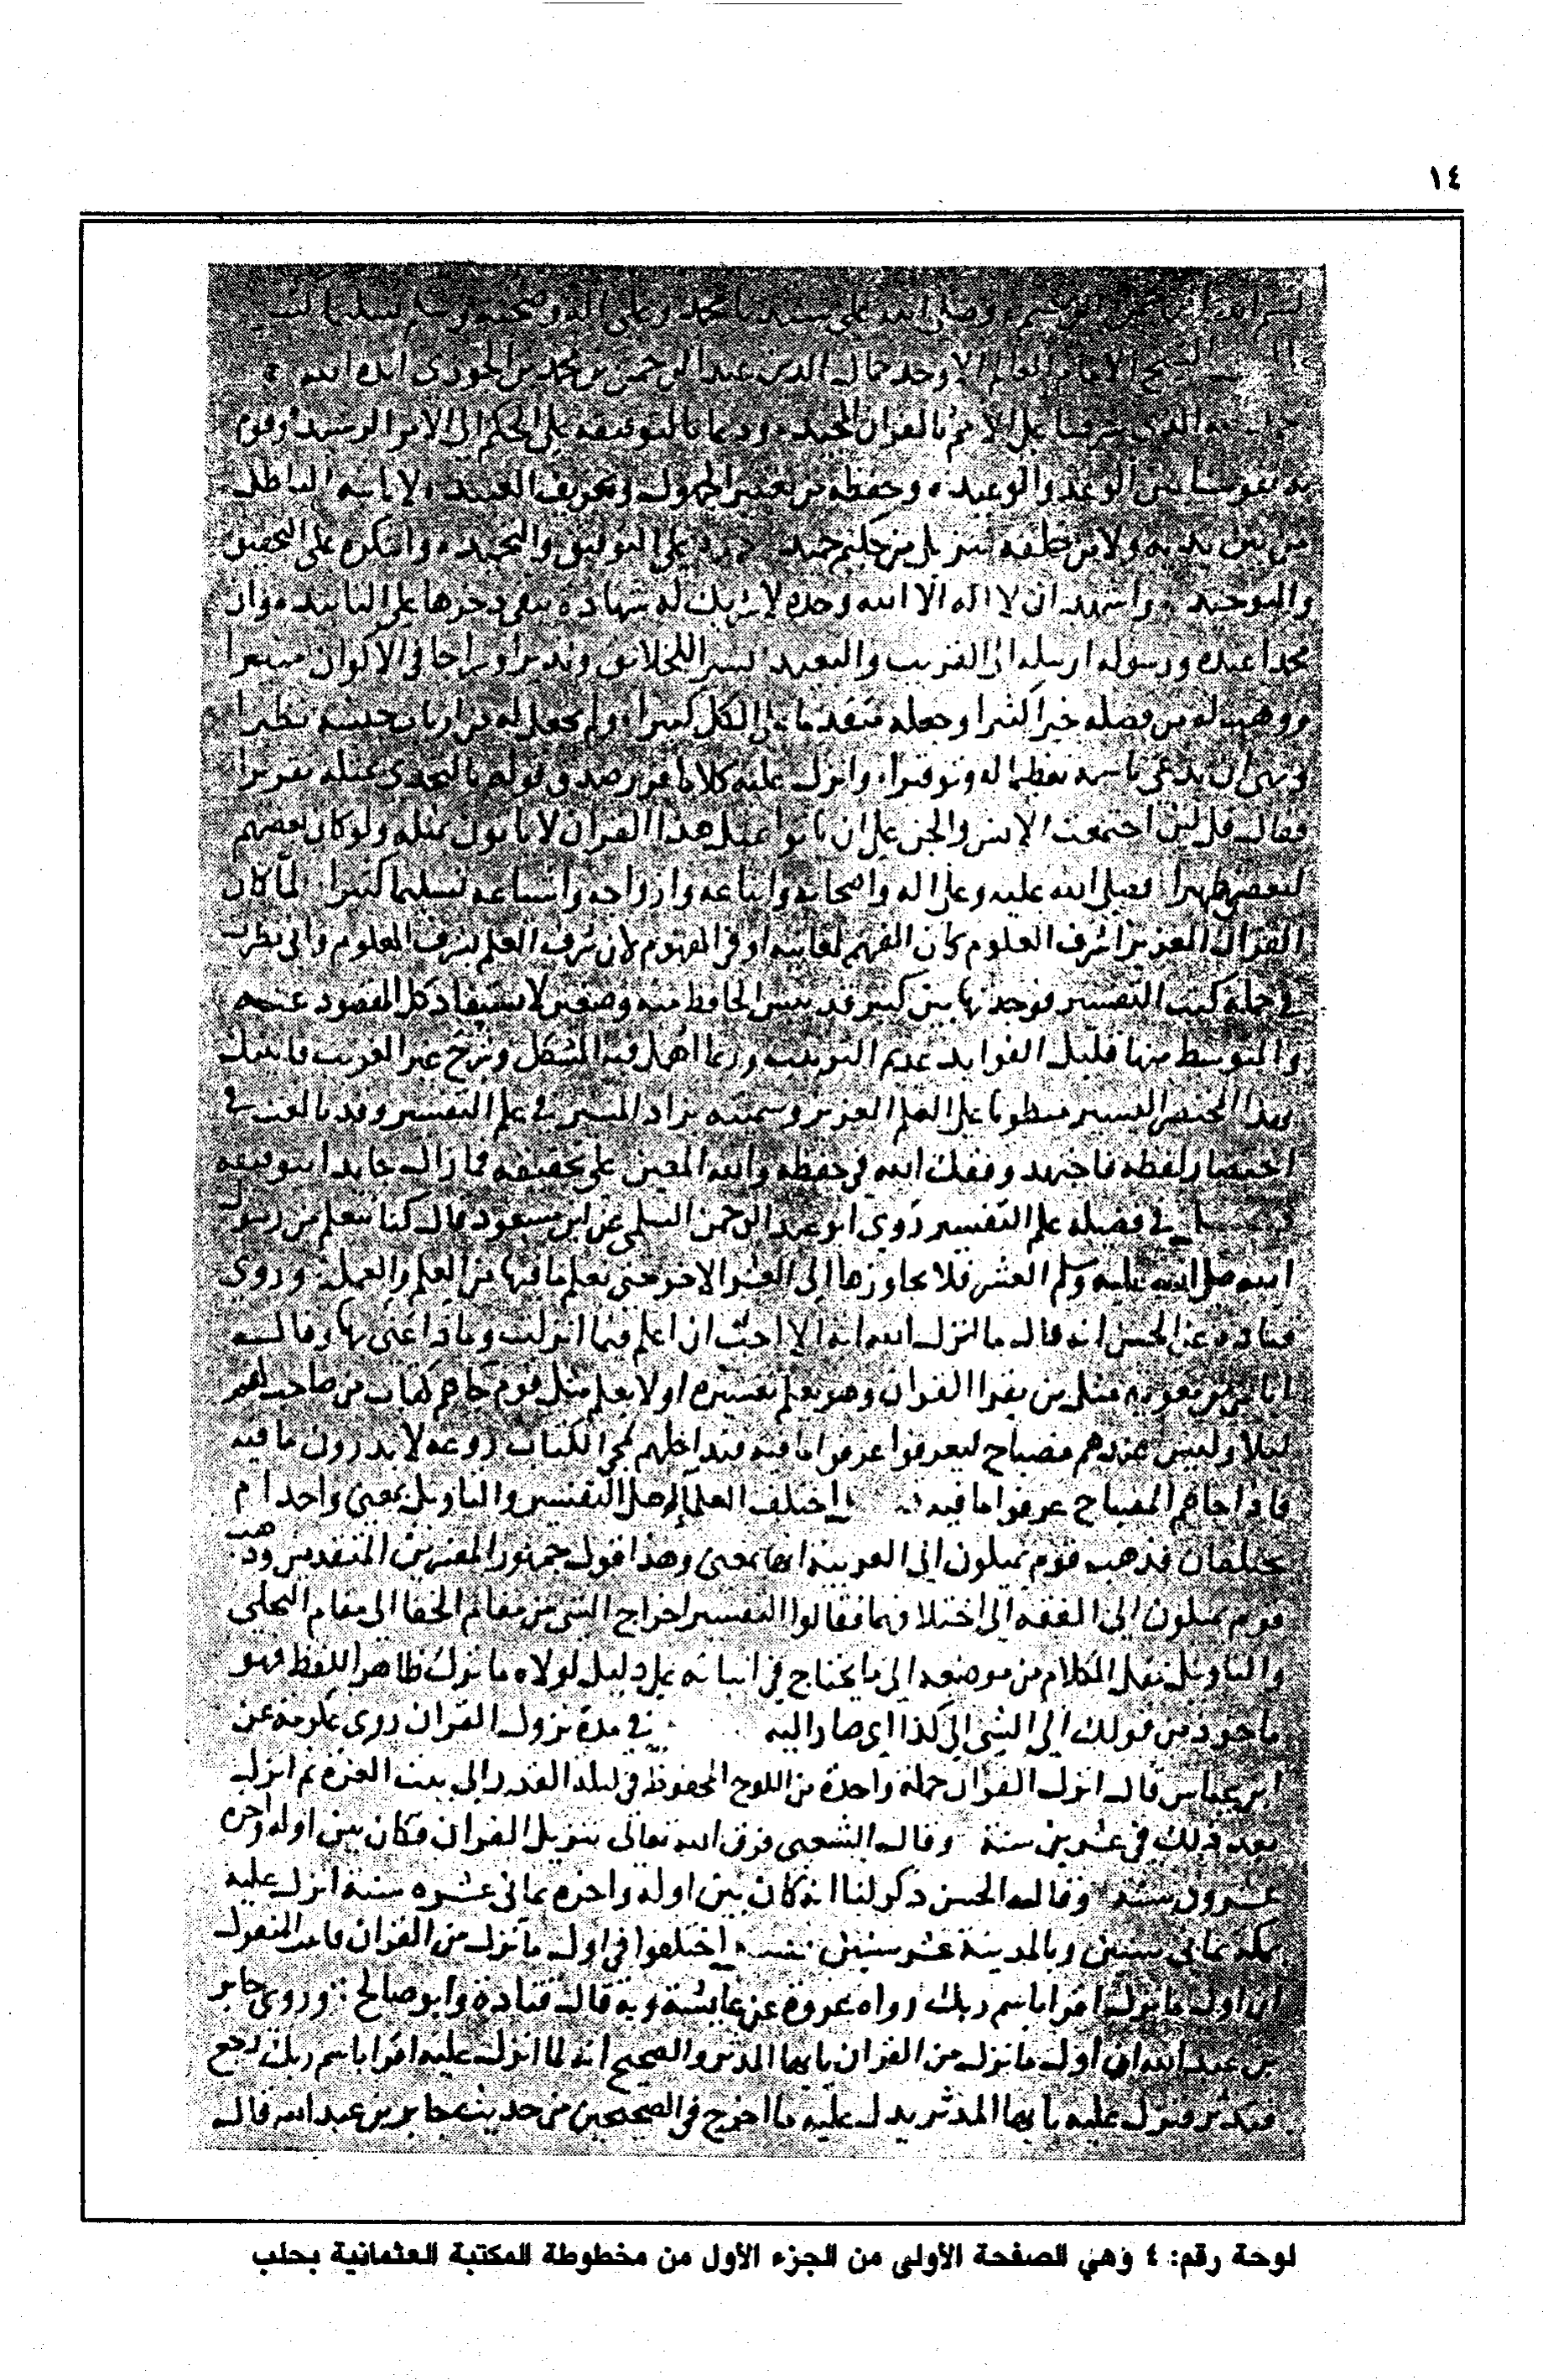 ١٤
بسم الله الرحمن الرحيم وصلى الله على سيدنا محمد وعلى اله وصحبه وسلم تسليما
الشيخ الامام العالم الاوحد جمال الدين عبد الرحمن بن محمد بن الجوزي ايده الله
الذي شرفنا على الامم بالقران المجيد ودعانا بتوفيقه على الحكم الى الامر الرشيد وقوم
به نفوسنا بين الوعد والوعيد وحفظه من تغيير الجهول وتحريف العنيد لا ياتيه الباطل
من بين يديه ولا من خلفه تنزيل من حكيم حميد على التوفيق والتحميد واشكره على التحقيق
والتوحيد واشهد ان لا اله الا الله وحده لا شريك له شهادة يبقى ذخرها على التابيد وان
محمدا عبده ورسوله ارسله الى القريب والبعيد بشيرا للخلائق ونذيرا وسراجا في الاكوان منيرا
ووهب له من فضله خيرا كثيرا وجعله متقدما على الكل كبيرا ولم يجعل له من ارباب جنسه نظيرا
ونهى ان يدعى باسمه تعظيما له وتوقيرا وانزل عليه كلاما قرر صدق قوله بالتحدي بمثله تقريرا
فقال قل لئن اجتمعت الانس والجن على ان ياتوا بمثل هذا القران لا ياتون بمثله ولو كان بعضهم
لبعض ظهيرا فصلى الله عليه وعلى اله واصحابه واتباعه وازواجه واشياعه تسليما كثيرا لما كان
القران العزيز اشرف العلوم كان الفهم لمعانيه اوفى الفهوم لان شرف العلم بشرف المعلوم واني نظرت
في جملة كتب التفسير فوجدتها بين كبير قد يئس الحافظ منه وصغير لا يستفاد كل المقصود عنه
والمتوسط منها قليل الفوايد عديم الترتيب وربما اهمل فيه المشكل وشرح غير الغريب فاتيتك
بهذا المختصر اليسير منطويا على العلم الغزير وسميته بزاد المسير في علم التفسير وقد بالغت في
اختصار لفظه فاجتهد وفقك الله في حفظه والله المعين على تحقيقه فما زال جايدا بتوفيقه
فصل في فضيلة علم التفسير روى ابو عبد الرحمن السلمي عن ابن مسعود قال كنا نتعلم من رسول
الله صلى الله عليه وسلم العشر فلا نجاوزها الى العشر الاخر حتى نعلم ما فيها من العلم والعمل وروى
قتادة عن الحسن انه قال ما انزل الله اية الا احب ان اعلم فيما انزلت وماذا عنى بها وقال
اياس بن معوية مثل من يقرا القران وهو يعلم تفسيره او لا يعلم مثل قوم جاهم كتاب من صاحب لهم
ليلا وليس عندهم مصباح فتداخلهم لمجي الكتاب روعة لا يدرون ما فيه
فاذا جاهم المصباح عرفوا ما فيه اختلف العلما هل التفسير والتاويل بمعنى واحد ام
يختلفان فذهب قوم يميلون الى العربية انهما بمعنى وهذا قول جمهور المفسرين المتقدمين وذهب
قوم يميلون الى الفقه الى اختلافهما فقالوا التفسير اخراج الشي من مقام الخفا الى مقام التجلي
والتاويل نقل الكلام من موضعه الى ما يحتاج في اثباته على دليل لولاه ما ترك ظاهر اللفظ فهو
ماخوذ من قولك ال الشي الى كذا اي صار اليه في مدة نزول القران روى عكرمة عن
ابن عباس قال انزل القران جملة واحدة من اللوح المحفوظ في ليلة القدر الى بيت العزة ثم انزل
بعد ذلك في عشرين سنة وقال الشعبي فرق الله تعالى تنزيل القران فكان بين اوله واخره
عشرون سنة وقال الحسن ذكر لنا انه كان بين اوله واخره ثماني عشره سنة انزل عليه
بمكة ثماني سنين وبالمدينة عشر سنين اختلفوا في اول ما نزل من القران فاثبت المنقول
ان اول ما نزل اقرا باسم ربك رواه عروة عن عايشة وبه قال قتادة وابو صالح وروى جابر
بن عبد الله ان اول ما نزل من القران يا ايها المدثر والصحيح انه لما انزل عليه اقرا باسم ربك رجع
فتدثر فنزل عليه يا ايها المدثر يدل عليه ما اخرج في الصحيحين من حديث جابر بن عبد الله قال
لوحة رقم: ٤ وهي الصفحة الأولى من الجزء الأول من مخطوطة المكتبة العثمانية بحلب